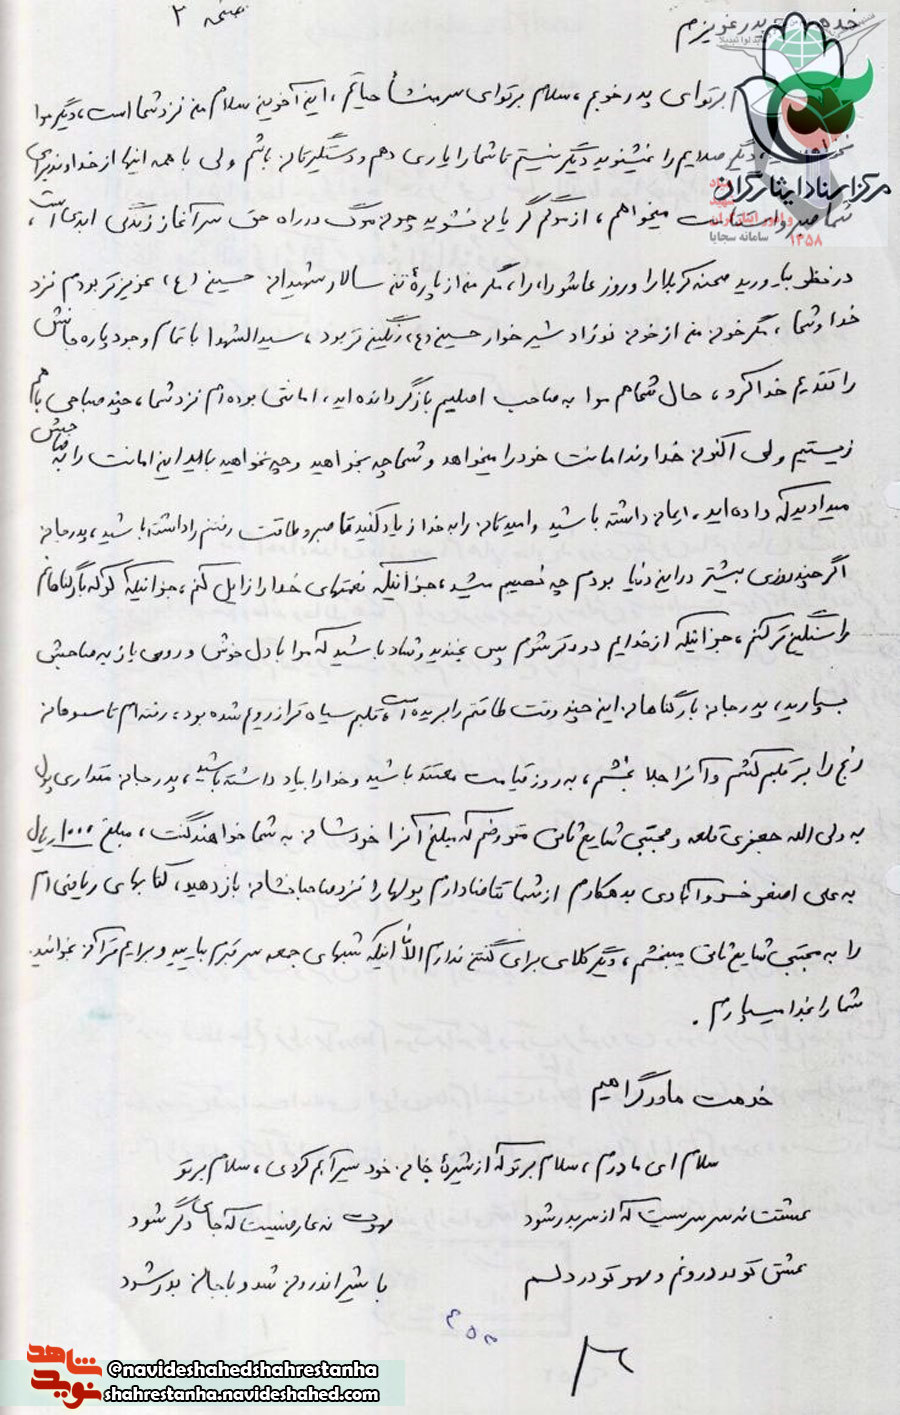 صفحه ۲
خدمت پدر عزیزم
بر توای پدر خوبم ، سلام بر توای سرمنشأ حیاتم ، این آخرین سلام من نزد شما است ، دیگر مرا
دیگر صدایم را نمیشنوید دیگر نیستم تا شما را یاری دهم و دستگیرتان باشم ولی با همه اینها از خداوند برای
شما صبر و استقامت میخواهم ، از مرگم گریان نشوید چون مرگ در راه حق سرآغاز زندگی ابدی است ،
در نظر بیاورید صحنه کربلا را و روز عاشورا را ، مگر من از پارۀ تن سالار شهیدان حسین (ع) عزیزتر بودم نزد
خدا و شما ، مگر خون من از خون نوزاد شیر خوار حسین (ع) رنگین تر بود ، سید الشهدا با تمام وجود پاره جانش
را تقدیم خدا کرد ، حال شما هم مرا به صاحب اصلیم بازگردانده اید ، امانتی بوده ام نزد شما ، چند صباحی با هم
زیستیم ولی اکنون خداوند امانت خود را میخواهد و شما چه بخواهید و چه نخواهید باید این امانت را به صاحبش
میدادید که داده اید ، ایمان داشته باشید و امیدتان را به خدا زیاد کنید تا صبر و طاقت رفتنم را داشته باشید ، پدر جان
اگر چند روزی بیشتر در این دنیا بودم چه نصیبم میشد ، جز آنکه نعمتهای خدا را زایل کنم ، جز اینکه کوله بار گناهانم
را سنگین تر کنم ، جز اینکه از خدایم دورتر شوم پس بخندید و شاد باشید که مرا با دل خوش و روی باز به صاحبش
بسپارید ، پدر جان بار گناهان این چند وقت طاقتم را بریده است ، قلبم سیاه تر از رویم شده بود ، رفته ام تا سوهان
رنج را بر قلبم کشم و آنرا جلا بخشم ، به روز قیامت معتقد باشید و خدا را بیاد داشته باشید ، پدر جان مقداری پول
به ولی الله جعفری قلعه و مجتبی شایع ثانی مقروضم که مبلغ آنرا خودشان به شما خواهند گفت ، مبلغ ۱۰۰۰ ریال
به علی اصغر خسروآبادی بدهکارم از شما تقاضا دارم پولها را نزد صاحبانشان باز دهید ، کتابهای ریاضی ام
را به مجتبی شایع ثانی میبخشم ، دیگر کلامی برای گفتن ندارم الا اینکه شبهای جمعه سر قبرم بیایید و برایم قرآن بخوانید .
شما را بخدا میسپارم .
خدمت مادر گرامیم
سلام ای مادرم ، سلام بر تو که از شیرۀ جان خود سیرآبم کردی ، سلام بر تو
عشقت نه سرسریست که از سر بدر شود
مهرت نه عارضیست که جای دگر شود
عشق تو در درونم و مهر تو در دلم
با شیر اندرون شد و با جان بدر شود
مرکز اسناد ایثارگران
۱۳۵۸
سامانه سجایا
نوید شاهد
@navideshahedshahrestanha
shahrestanha.navideshahed.com